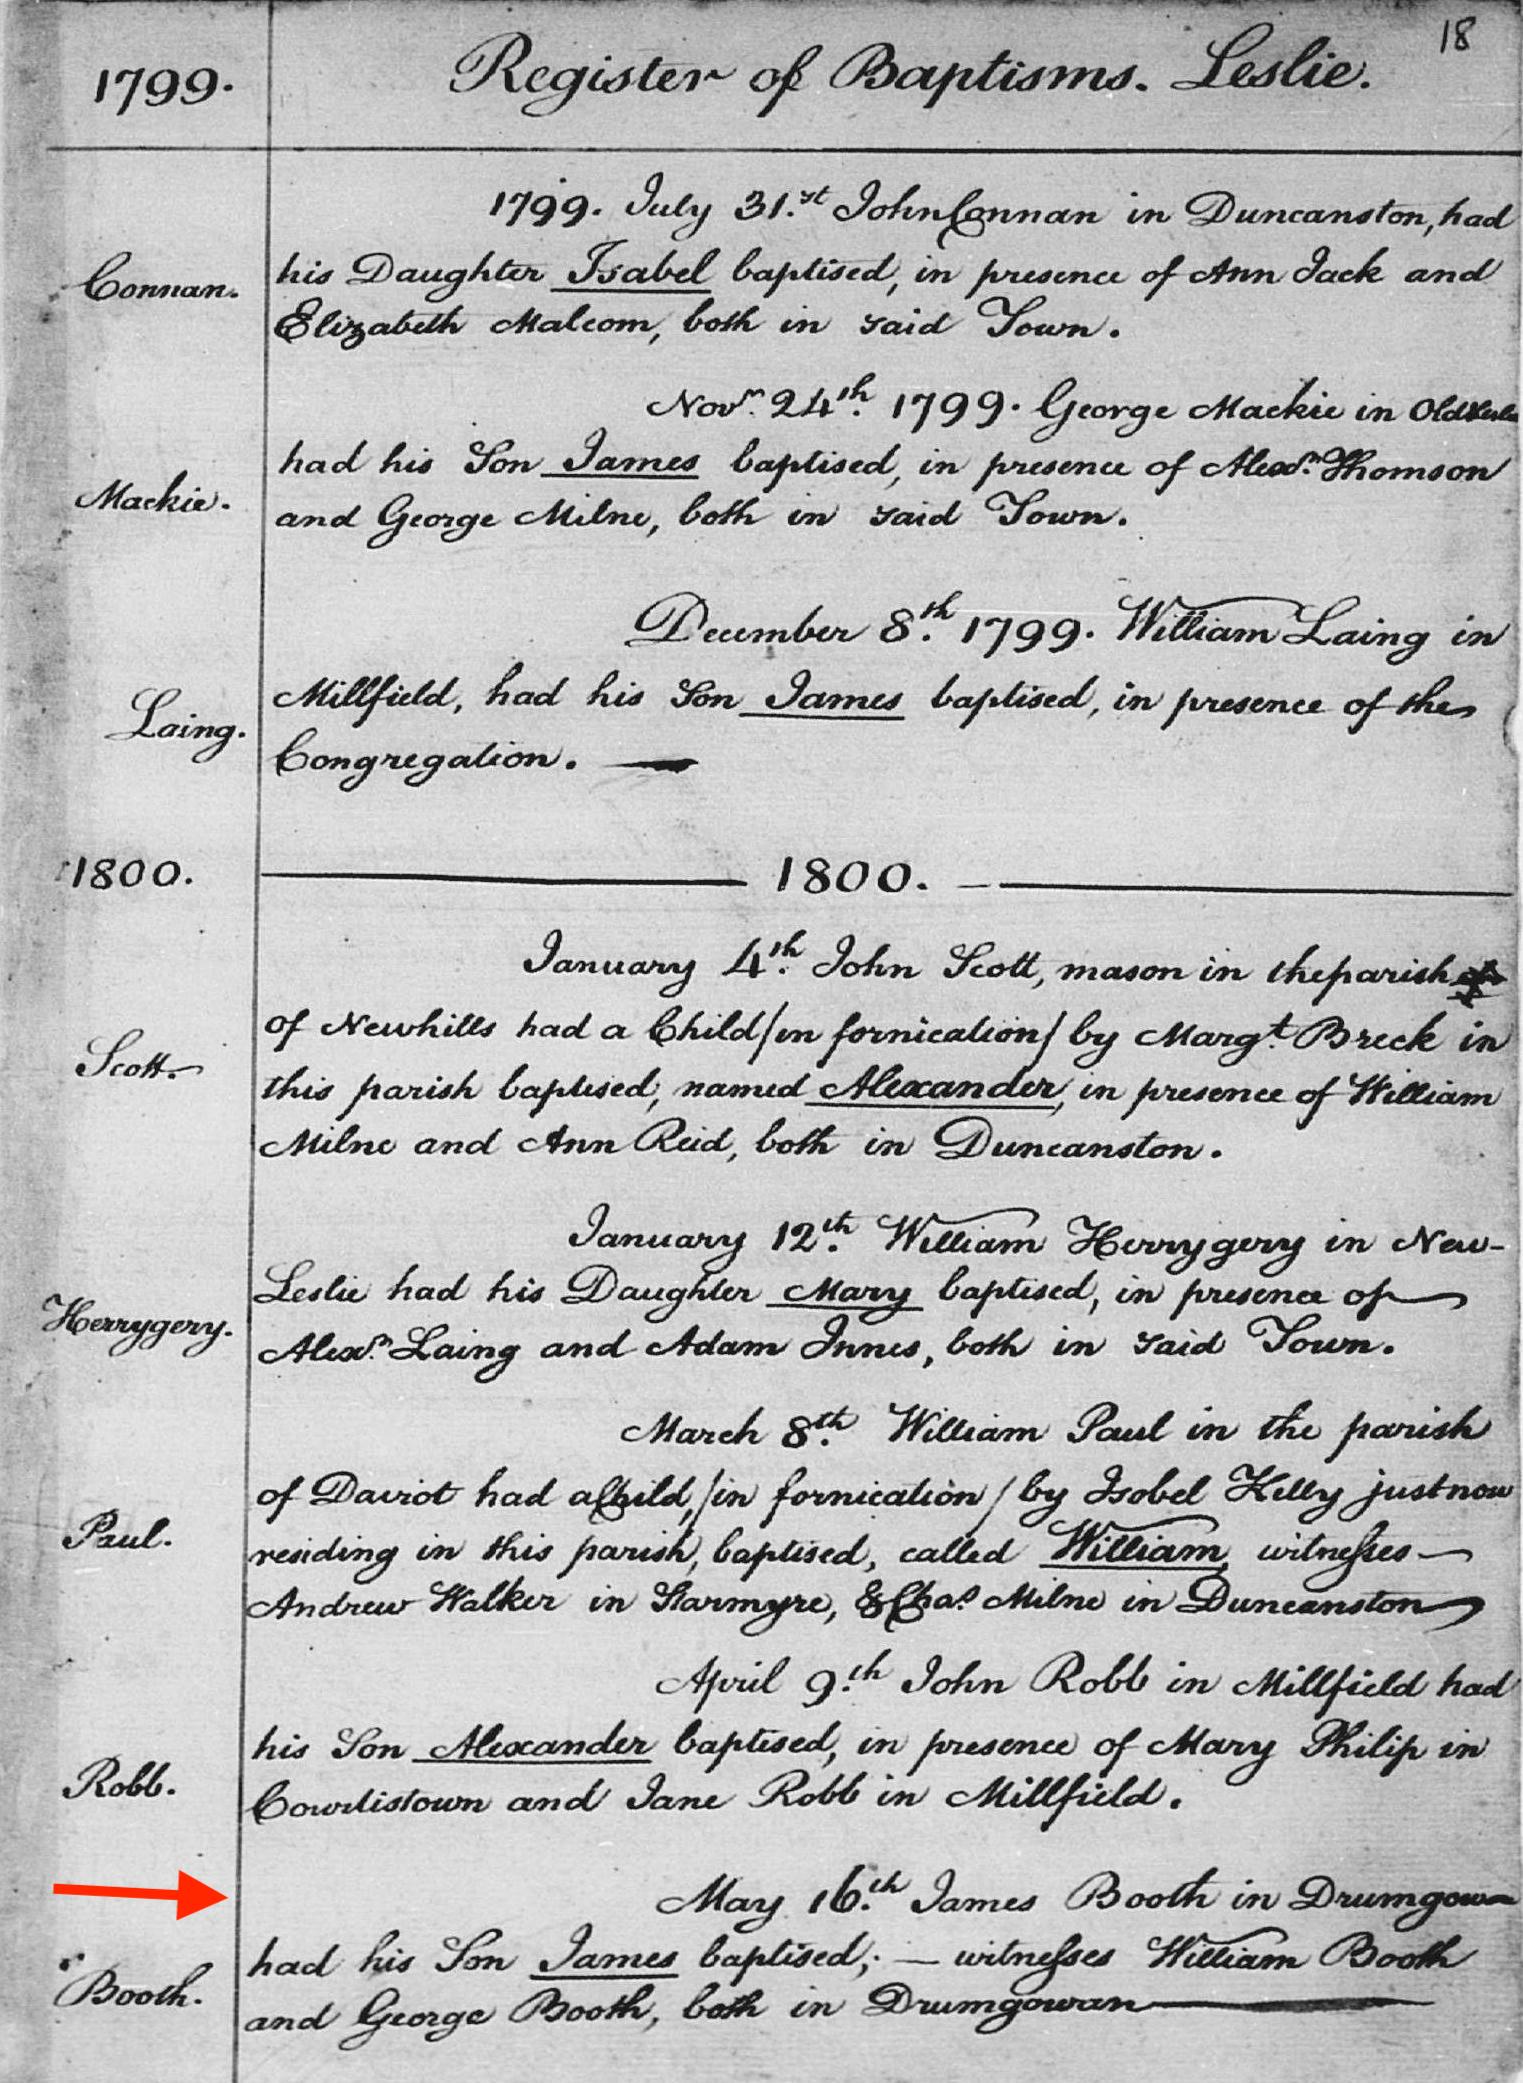 18
1799. Register of Baptisms. Leslie.
1799. July 31.st John Connan in Duncanston, had
Connan. his Daughter Isabel baptised, in presence of Ann Jack and
Elizabeth Malcom, both in said Town.
Novr. 24th. 1799. George Mackie in Old
had his Son James baptised, in presence of Alexr. Thomson
Mackie. and George Milne, both in said Town.
December 8th. 1799. William Laing in
Millfield, had his Son James baptised, in presence of the
Laing. Congregation.
1800. 1800.
January 4th. John Scott, mason in the parish
of Newhills had a Child /in fornication/ by Margt. Breck in
Scott. this parish baptised, named Alexander, in presence of William
Milne and Ann Reid, both in Duncanston.
January 12th. William Herrygery in New-
Leslie had his Daughter Mary baptised, in presence of
Herrygery. Alexr. Laing and Adam Innes, both in said Town.
March 8th. William Paul in the parish
of Daviot had a Child, /in fornication/ by Isobel Kelly just now
Paul. residing in this parish, baptised, called William, witnesses
Andrew Walker in Harmyre, & Chas. Milne in Duncanston
April 9.th John Robb in Millfield had
his Son Alexander baptised, in presence of Mary Philip in
Robb. Courtistown and Jane Robb in Millfield.
May 16.th James Booth in Drumgowan
had his Son James baptised; — witnesses William Booth
Booth. and George Booth, both in Drumgowan